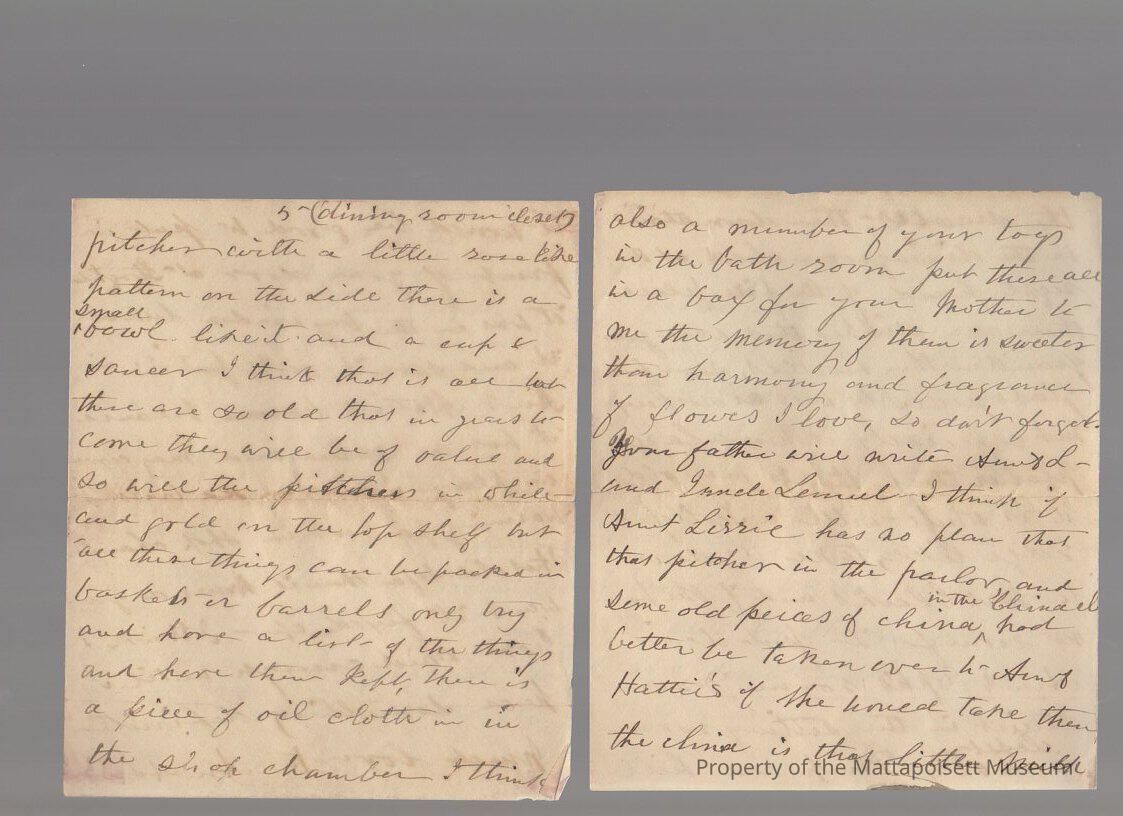 5 (dining room closet)
pitcher with a little rose like
pattern on the side there is a
small
bowl like it and a cup &
saucer I think that is all but
these are so old that in years to
come they will be of value and
so will the pitchers in white
and gold on the top shelf but
all these things can be packed in
baskets or barrels only try
and have a list of the things
and have them kept, there is
a piece of oil cloth in in
the shop chamber I think
also a number of your toys
in the bath room put these all
in a box for your Mother to
me the memory of them is sweeter
than harmony and fragrance
of flowers I love, so don't forget
Your father will write Aunt L-
and Uncle Lemuel I think if
Aunt Lizzie has no plan that
that pitcher in the parlor, and
in the China cl
some old peices of china, had
better be taken over to Aunt
Hattie's if she would take them
the china is that little
Property of the Mattapoisett Museum